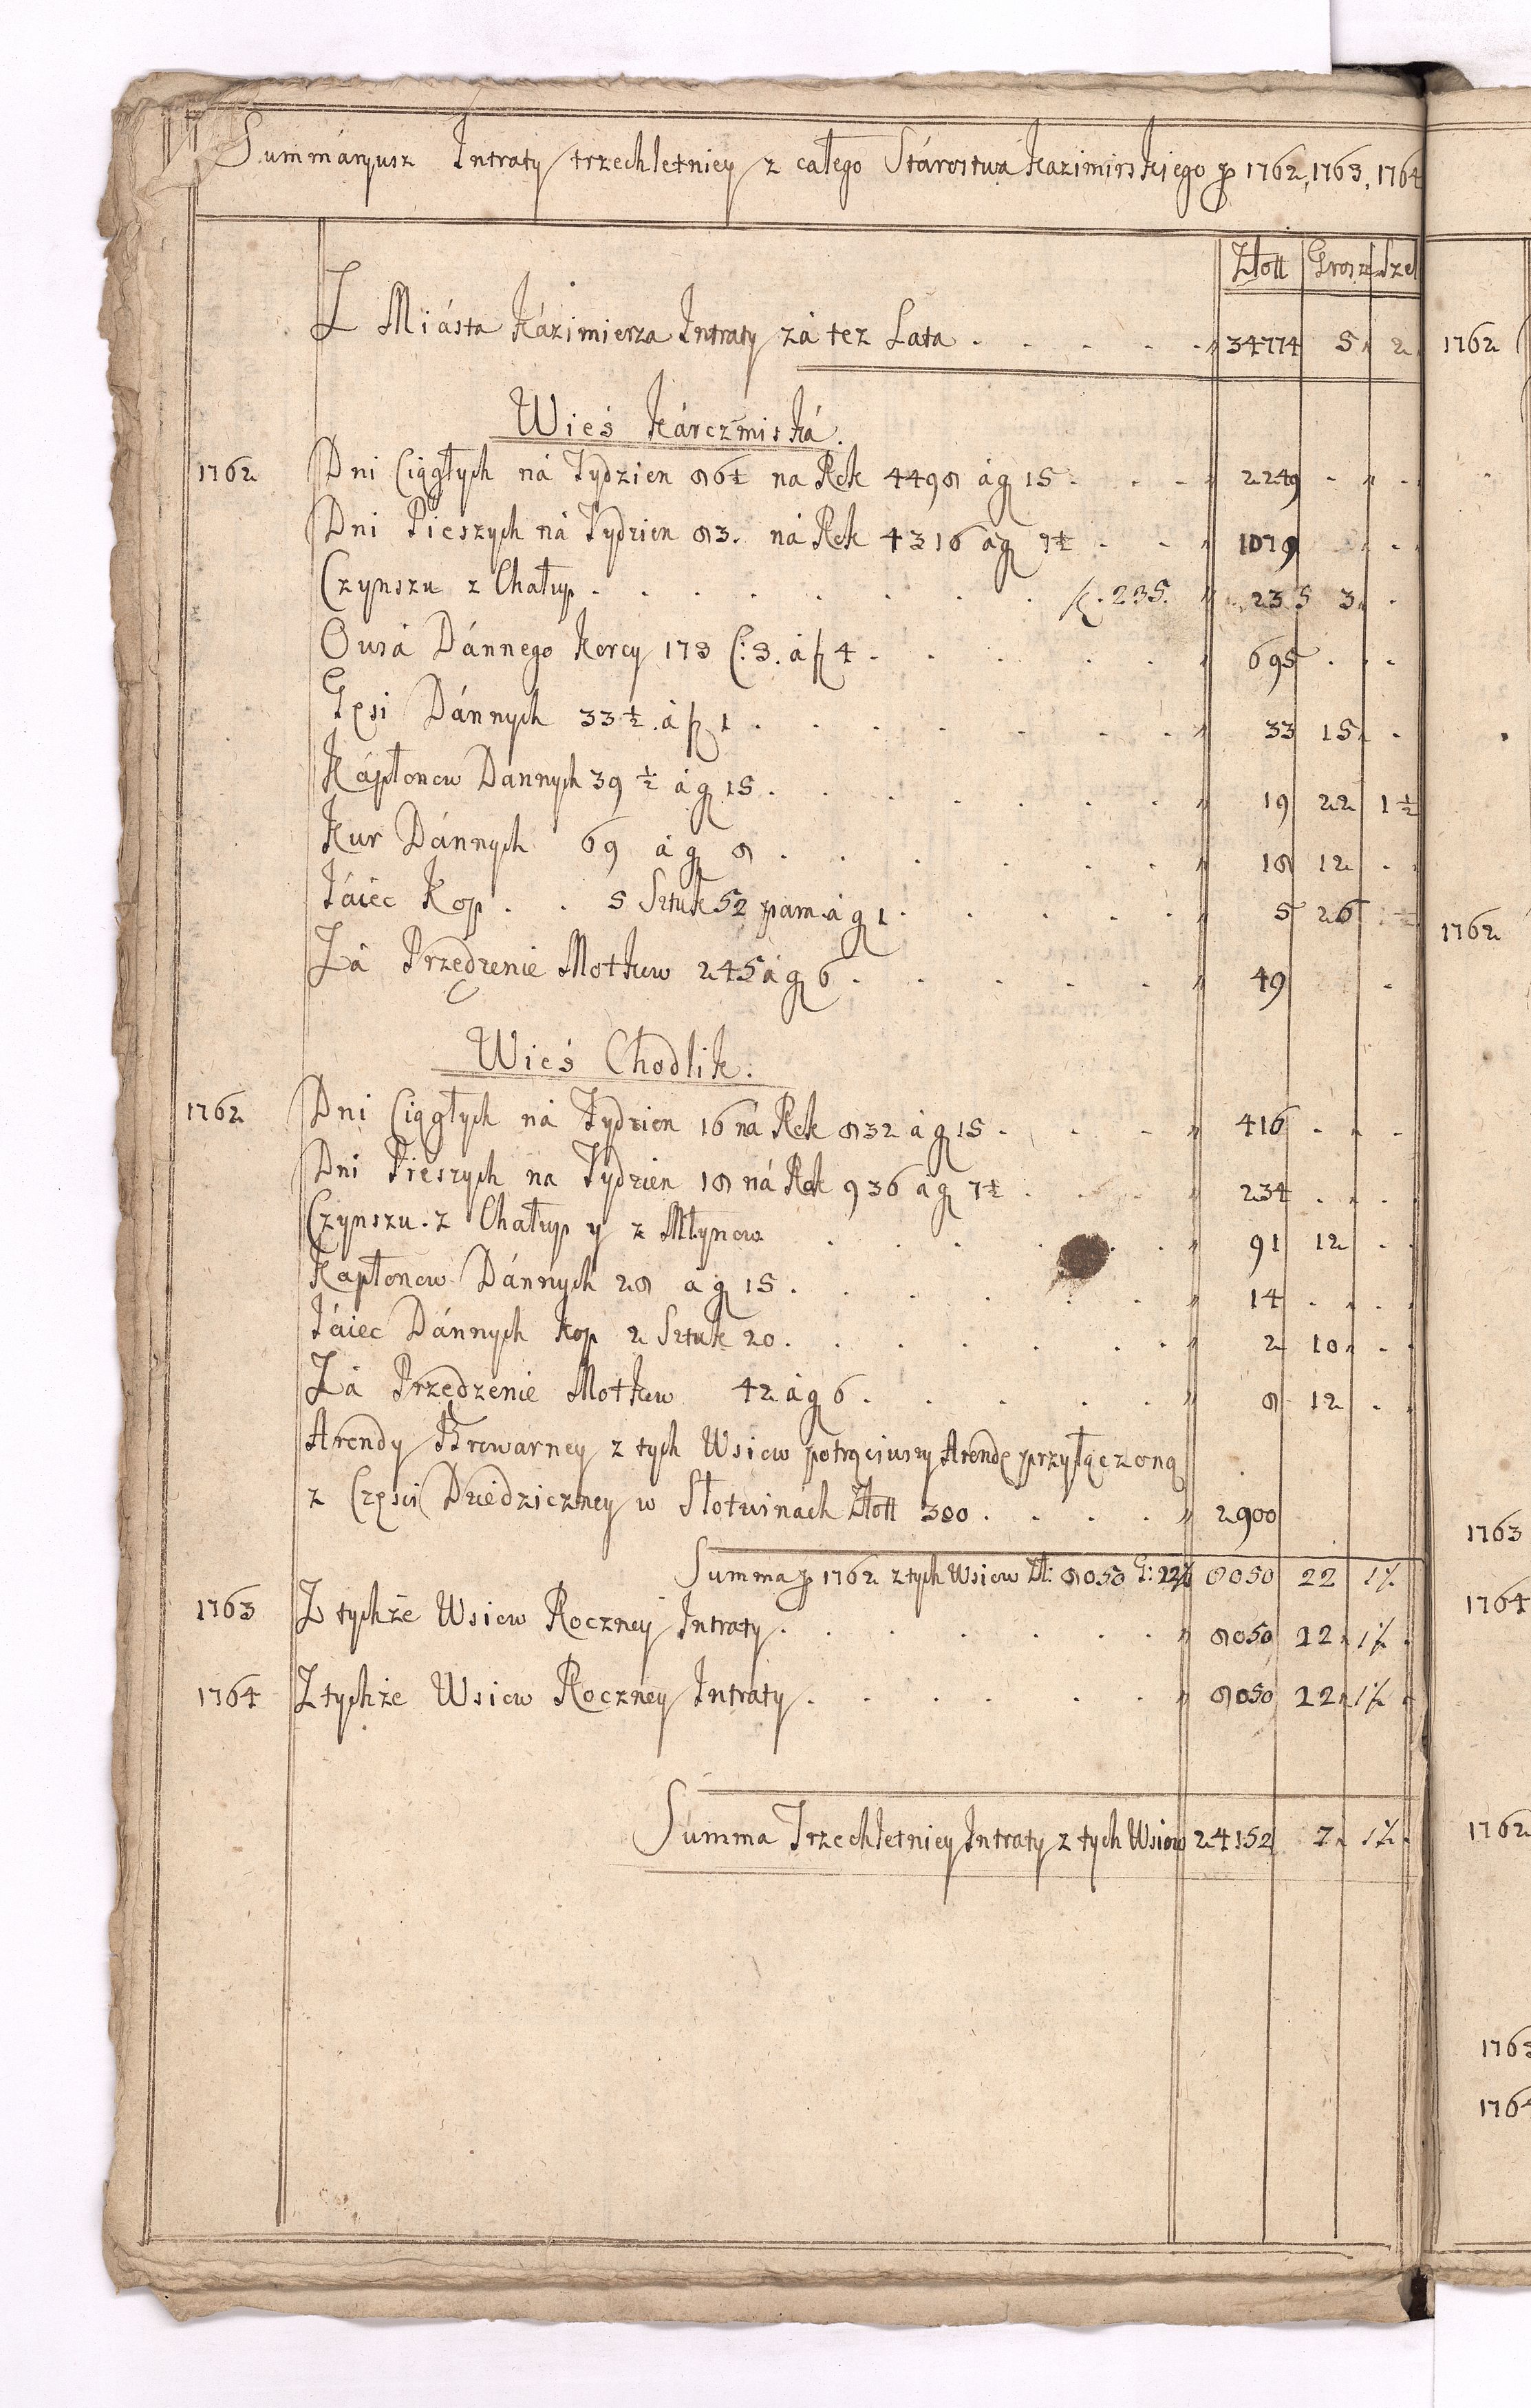 Summáryusz Intraty trzechletniey z całego Stárostwa Kazimirskiego p 1762, 1763, 1764
Złott Grosz Szel
Z Miásta Kázimierza Intraty zá tez Lata 34774 5 2
Wieś Kárczmiská.
1762 Dni Ciągłych ná Tydzien 86½ na Rok 4498 á g 15 2249
Dni Pieszych ná Tydzien 83. ná Rok 4316 á g 7½ 1079
Czynszu z Chałup f. 235. 235 3
Owsá Dánnego Korcy 173 C: 3. á f 4 695
Gęsi Dánnych 33½ á f 1 33 15
Kápłonow Dannych 39½ á g 15 19 22 1½
Kur Dánnych 69 á g 8 18 12
Jáiec Kop 5 Sztuk 52 param á g 1 5 26
Zá Przędzenie Motkow 245 á g 6 49
Wieś Chodlik.
1762 Dni Ciągłych ná Tydzien 16 ná Rok 832 á g 15 416
Dni Pieszych na Tydzien 18 ná Rok 936 á g 7½ 234
Czynszu z Chałup y z Młynow 91 12
Kapłonow Dánnych 28 á g 15 14
Jáiec Dánnych Kop 2 Sztuk 20 2 10
Zá Przędzenie Motkow 42 á g 6 8 12
Arendy Browarney z tych Wsiow potrąciwszy Arendę przyłączoną
z Częsci Dziedziczney w Słotwinách Złott 300 2900
Summa p 1762 z tych Wsiow Zł: 8050 G: 22½ 8050 22 1½
1763 Z tychże Wsiow Roczney Intraty 8050 22 1½
1764 Z tychże Wsiow Roczney Intraty 8050 22 1½
Summa Trzechletniey Intraty z tych Wsiow 24152 7 1½
1762
1762
1763
1764
1762
1763
1764